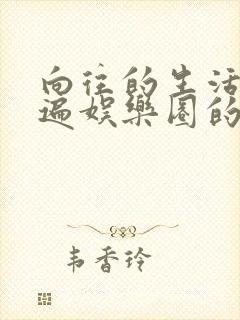 向往的生活
遍娱乐圈的
韦香玲